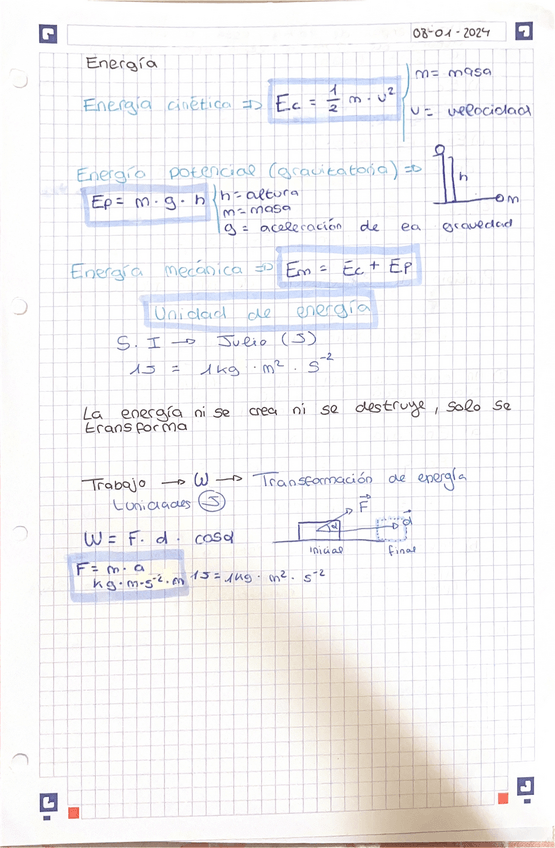 08-01-2024
Energía
Energía cinética => Ec = 1/2 m · v²
m = masa
v = velocidad
Energía potencial (gravitatoria) =>
h
m
Ep = m · g · h
h = altura
m = masa
g = aceleración de la gravedad
Energía mecánica => Em = Ec + Ep
Unidad de energía
S. I → Julio (J)
1J = 1kg · m² · s⁻²
La energía ni se crea ni se destruye, solo se
transforma
Trabajo → W → Transformación de energía
Unidades J
W = F · d · cosα
F⃗
α
d⃗
inicial
final
F = m · a
kg · m · s⁻² · m
1J = 1kg · m² · s⁻²